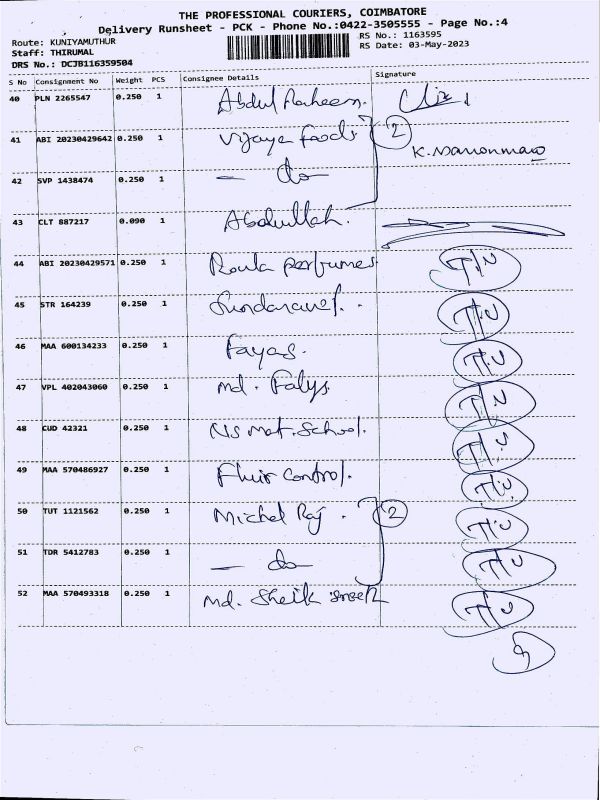 THE PROFESSIONAL COURIERS, COIMBATORE
Delivery Runsheet - PCK - Phone No.:0422-3505555 - Page No.:4
Route: KUNIYAMUTHUR
RS No.: 1163595
Staff: THIRUMAL
RS Date: 03-May-2023
DRS No.: DCJB116359504
S No Consignment No Weight PCS Consignee Details Signature
40 PLN 2265547 0.250 1 Abdul Raheem.
41 ABI 20230429642 0.250 1 Vijaya foods 2
K. Manonmani
42 SVP 1438474 0.250 1 — do —
43 CLT 887217 0.090 1 Abdullah.
44 ABI 20230429571 0.250 1 Roula perfumes T/U
45 STR 164239 0.250 1 T/U
46 MAA 600134233 0.250 1 Fayas. T/U
47 VPL 402043060 0.250 1 md. Falys T/U
48 CUD 42321 0.250 1 NS mat. School. T/U
49 MAA 570486927 0.250 1 Fluir Control. T/U
50 TUT 1121562 0.250 1 Michel Raj. 2 T/U
51 TDR 5412783 0.250 1 — do — T/U
52 MAA 570493318 0.250 1 md. Sheik T/U